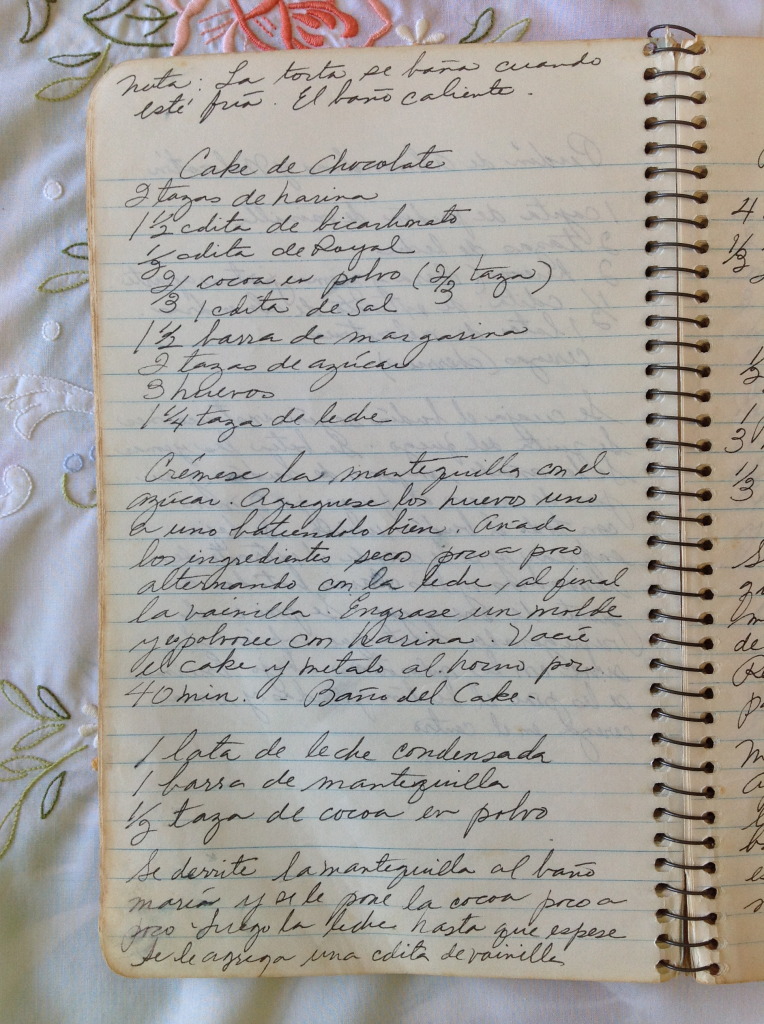 Nota: La torta se baña cuando
esté fría. El baño caliente.
Cake de Chocolate
2 tazas de harina
1 1/2 cdita de bicarbonato
1/2 cdita de Royal
2/3 cocoa en polvo (2/3 taza)
1 cdita de sal
1 1/2 barra de margarina
2 tazas de azúcar
3 huevos
1 1/4 taza de leche
Crémese la mantequilla con el
azúcar. Agreguese los huevos uno
a uno batiendolo bien. Añada
los ingredientes secos poco a poco
alternando con la leche, al final
la vainilla. Engrase un molde
y espolvoree con harina. Vacíe
el cake y metalo al horno por
40 min. - Baño del Cake -
1 lata de leche condensada
1 barra de mantequilla
1/2 taza de cocoa en polvo
Se derrite la mantequilla al baño
maría y se le pone la cocoa poco a
poco. Luego la leche hasta que espese
se le agrega una cdita de vainilla
4
1/3
1/2
1
3
1/3